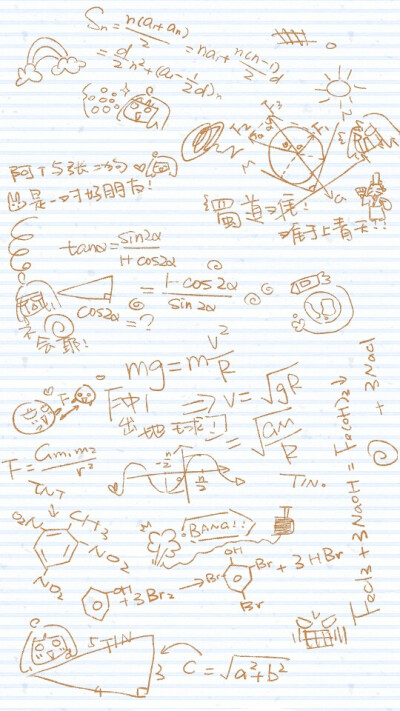 Sn = n(a₁+an)/2 = na₁ + n(n-1)/2 d
= d/2 n² + (a₁ - 1/2 d)n
阿T与张二狗
是一对好朋友!
蜀道难!
难于上青天!!
tanα = sin2α/1+cos2α
= 1-cos2α/sin2α
cos2α = ?
不会耶!
mg = m v²/R
⇒ V = √gR
= √GM/R
F
出地球!
F = Gm₁m₂/r²
-π/2
π/2
TIN.
TNT
CH3
O2N
NO2
NO2
BANG!!
OH + 3Br2 → OH Br Br Br + 3HBr
FeCl3 + 3NaOH = Fe(OH)2↓ + 3NaCl
5 TIN
3
4
C = √a²+b²